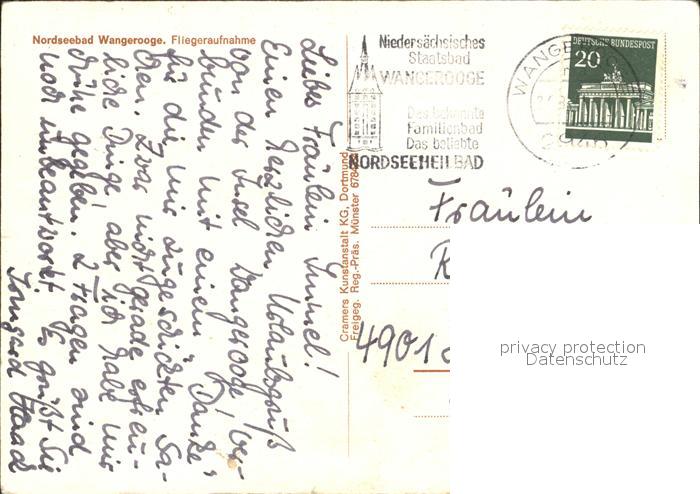 Nordseebad Wangerooge. Fliegeraufnahme
Liebes Fräulein
Einen herzlichen Urlaubsgruß
von der Insel Wangerooge! Ver-
bunden mit einem "Danke"
für die mir zugeschickten Sa-
chen. Zwar nicht gerade erfreu-
liche Dinge! aber ich habe mir
Mühe gegeben. 2 Fragen sind
noch unbeantwortet. Es grüßt Sie
Irmgard
Cramers Kunstanstalt KG, Dortmund
Freigeg. Reg.-Präs. Münster 678
Niedersächsisches
Staatsbad
WANGEROOGE
Das bekannte
Familienbad
Das beliebte
NORDSEEHEILBAD
WANGE
DEUTSCHE BUNDESPOST
20
Fräulein
4901
privacy protection
Datenschutz